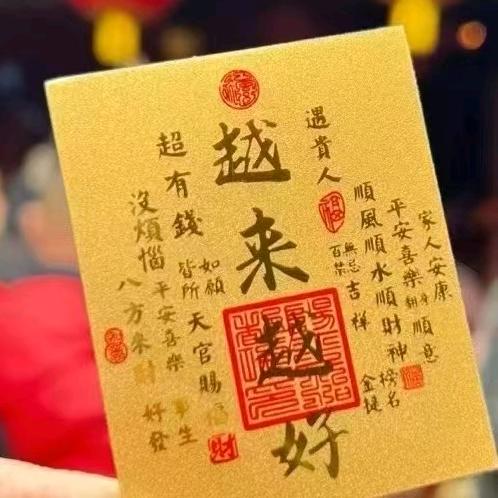 越来越好
遇貴人
順風順水順財神
平安喜樂
家人安康
順意
百無禁忌
吉祥
金榜
名
超有錢
沒煩惱
八方來財
平安喜樂
皆所
如願
天官賜福
好發
財